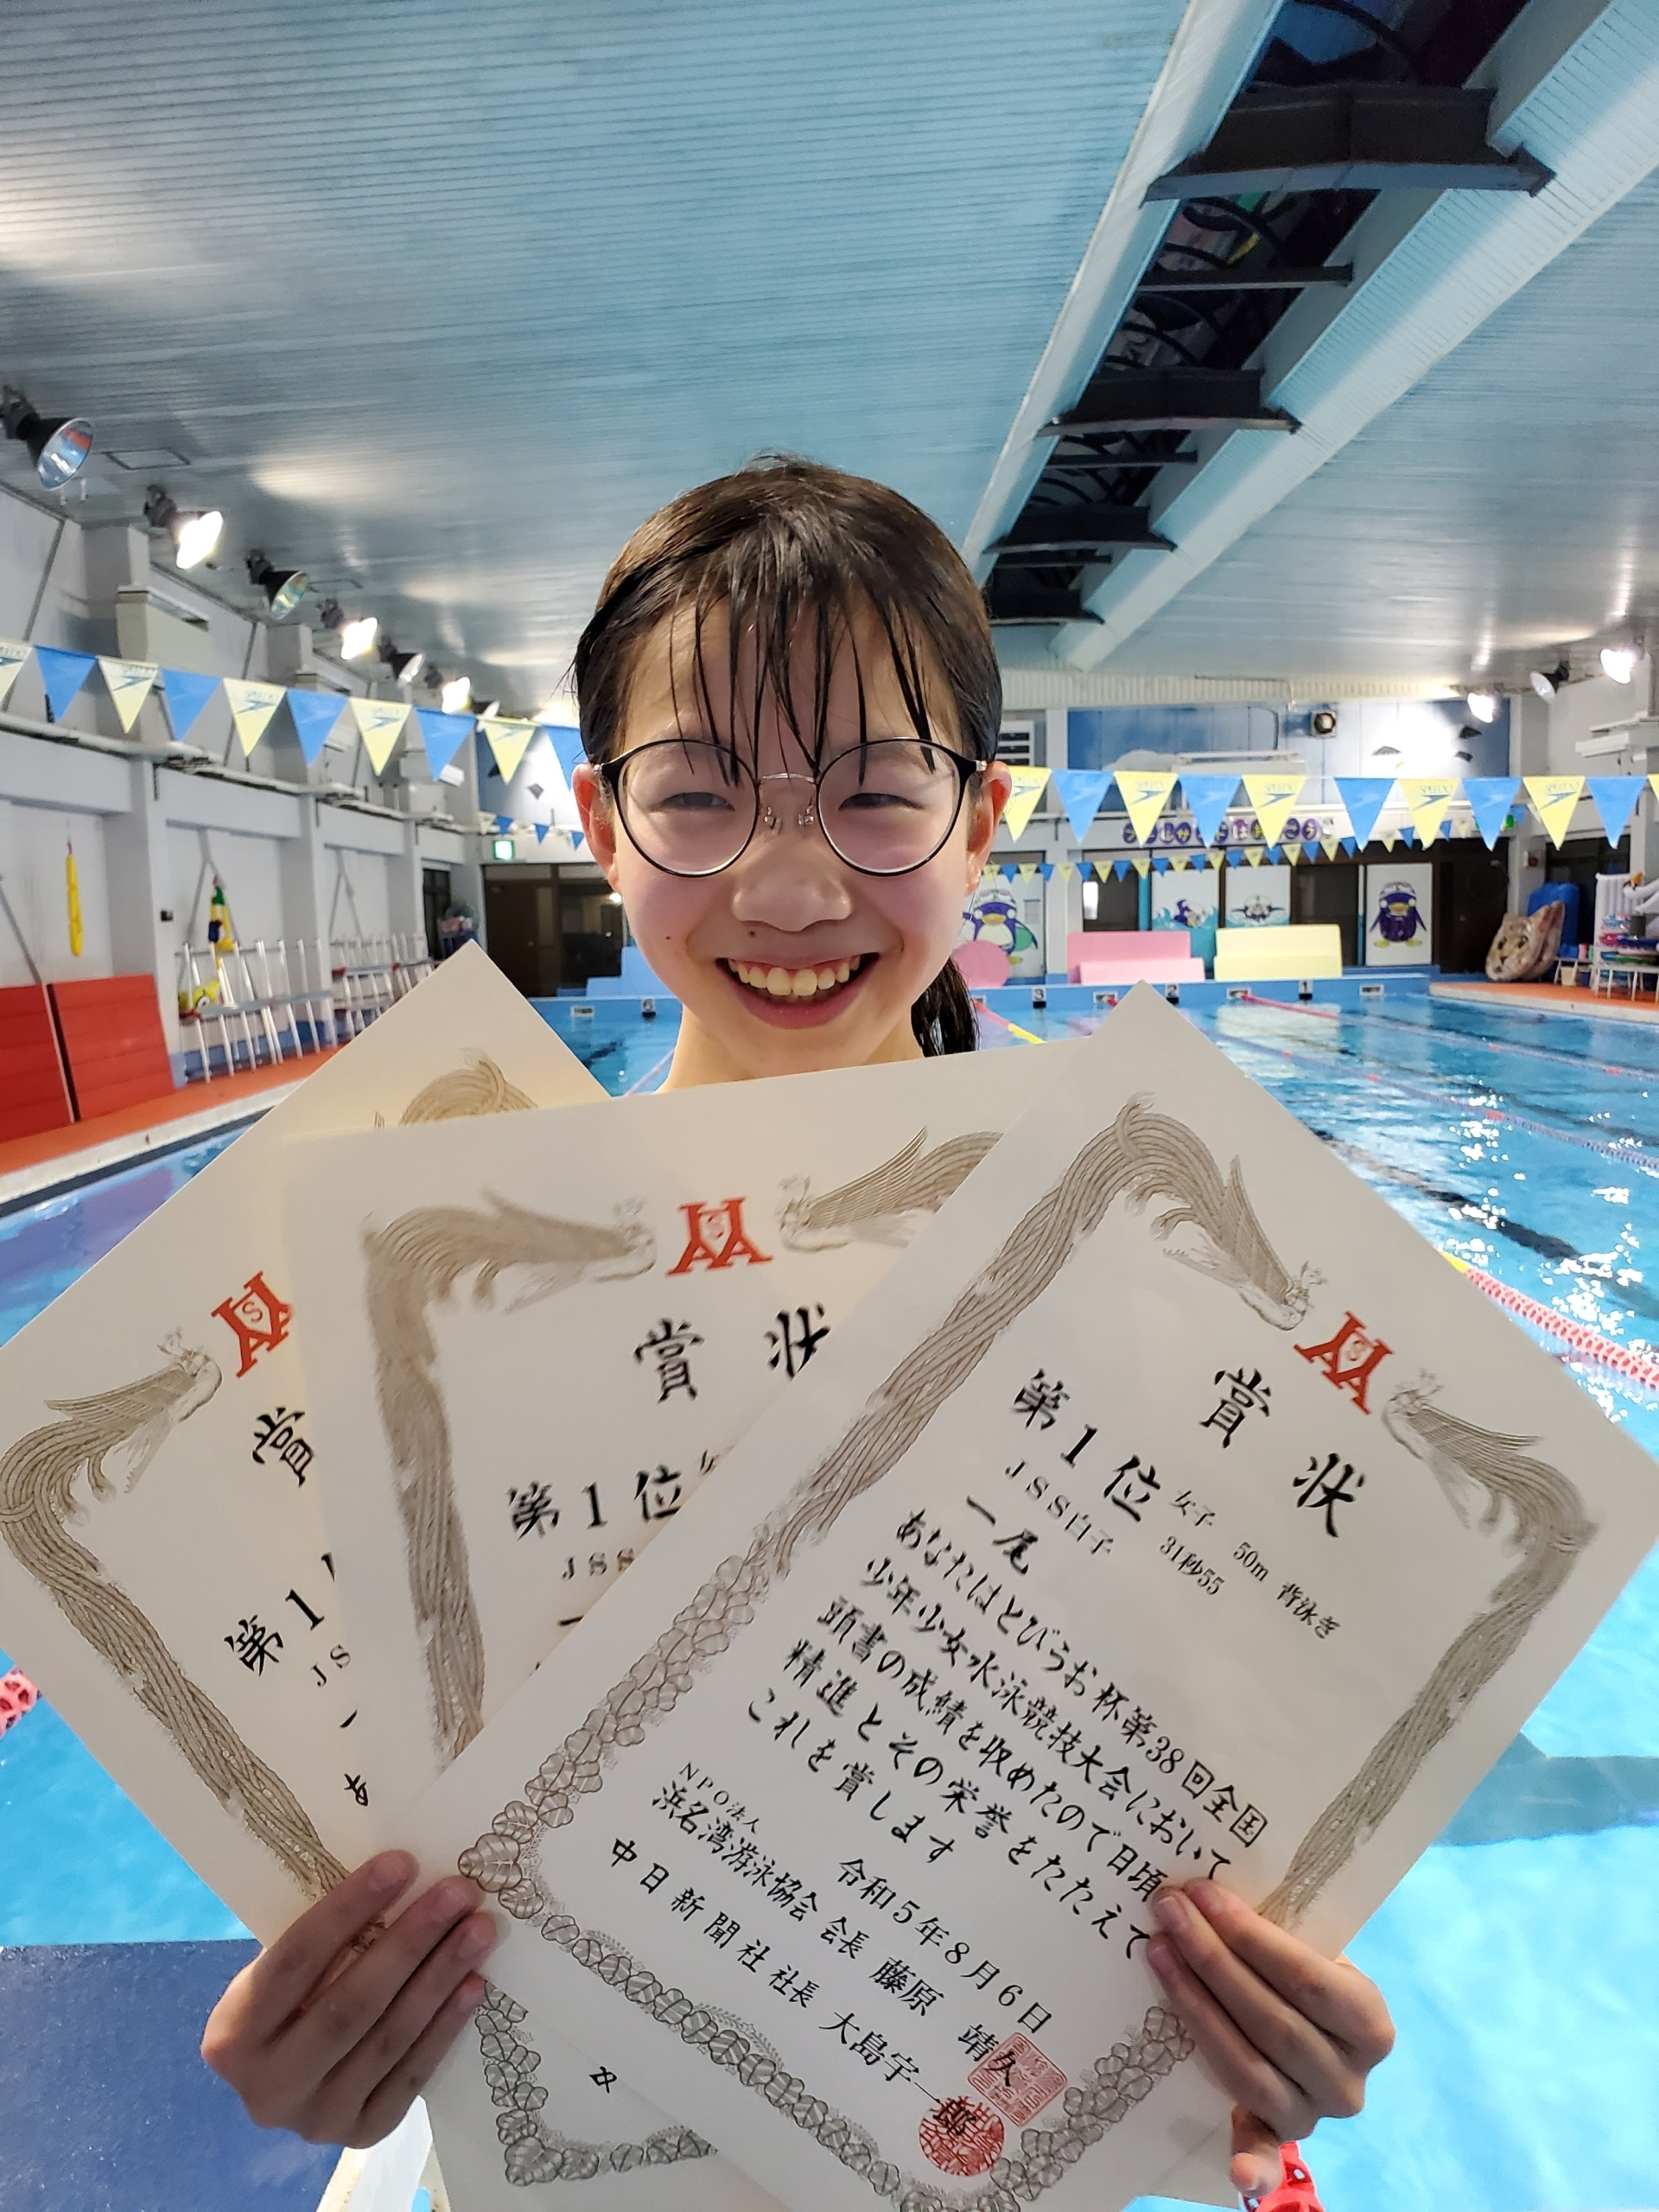 賞
第1
JS
一
あ
賞 状
第1位
JSS
賞 状
第1位 女子 50m 背泳ぎ
JSS白子 31秒55
一尾
あなたはとびうお杯第38回全国
少年少女水泳競技大会において
頭書の成績を収めたので日頃
精進とその栄誉をたたえて
これを賞します
令和5年8月6日
NPO法人
浜名湾游泳協会 会長 藤原 靖久
中日新聞社 社長 大島宇一郎
SPEEDO
6
3
2
1